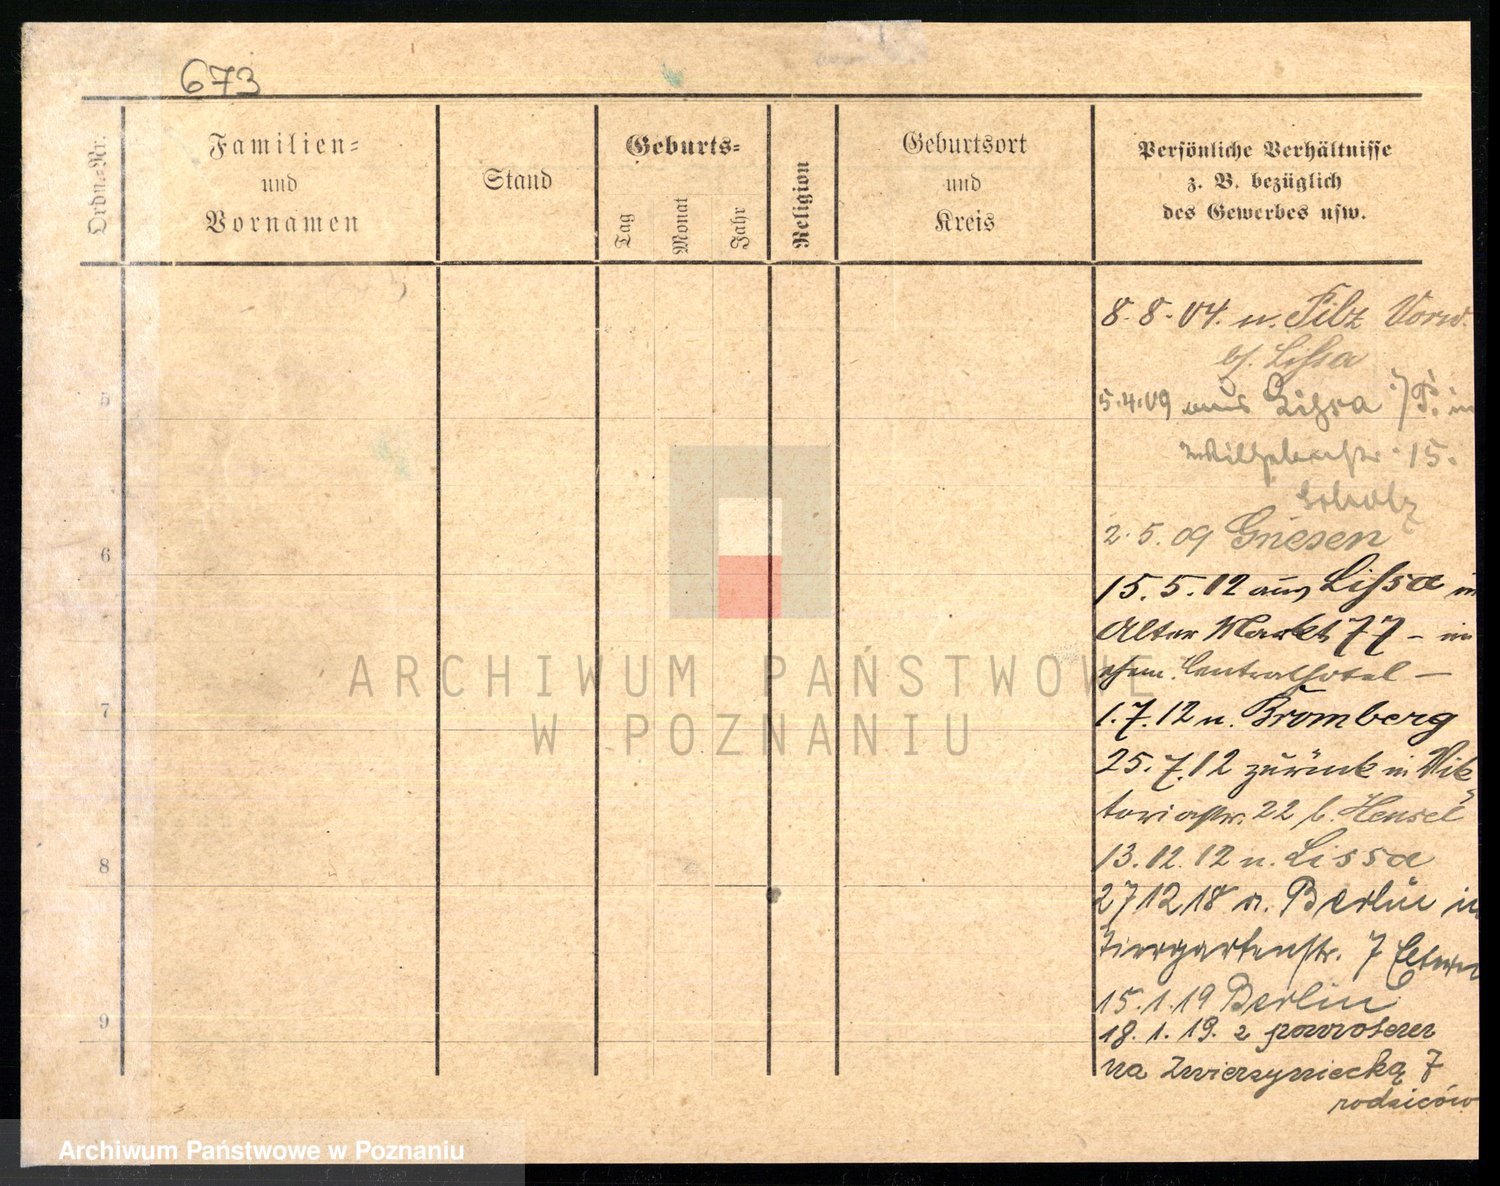 673
Ordn.-Nr.
Familien-
und
Vornamen
Stand
Geburts-
Tag
Monat
Jahr
Religion
Geburtsort
und
Kreis
Persönliche Verhältnisse
z. B. bezüglich
des Gewerbes usw.
8. 8. 04. n. Filz Vorw.
b/. Lissa
5
5.4.09 aus Lissa in
15.
Scholz
2. 5. 09 Gnesen
6
15. 5. 12 aus Lissa in
Alter Markt 77 – im
ehem. Centralhotel –
7
1. 7. 12 n. Bromberg
25. 7. 12 zurück in Vik
toriastr. 22 b. Hensel
13. 12. 12 n. Lissa
8
27 12 18 a. Berlin in
Tiergartenstr. 7 Eltern
15. 1. 19 Berlin
9
18. 1. 19. z powrotem
na Zwierzyniecką 7
rodziców
ARCHIWUM PAŃSTWOWE
W POZNANIU
Archiwum Państwowe w Poznaniu